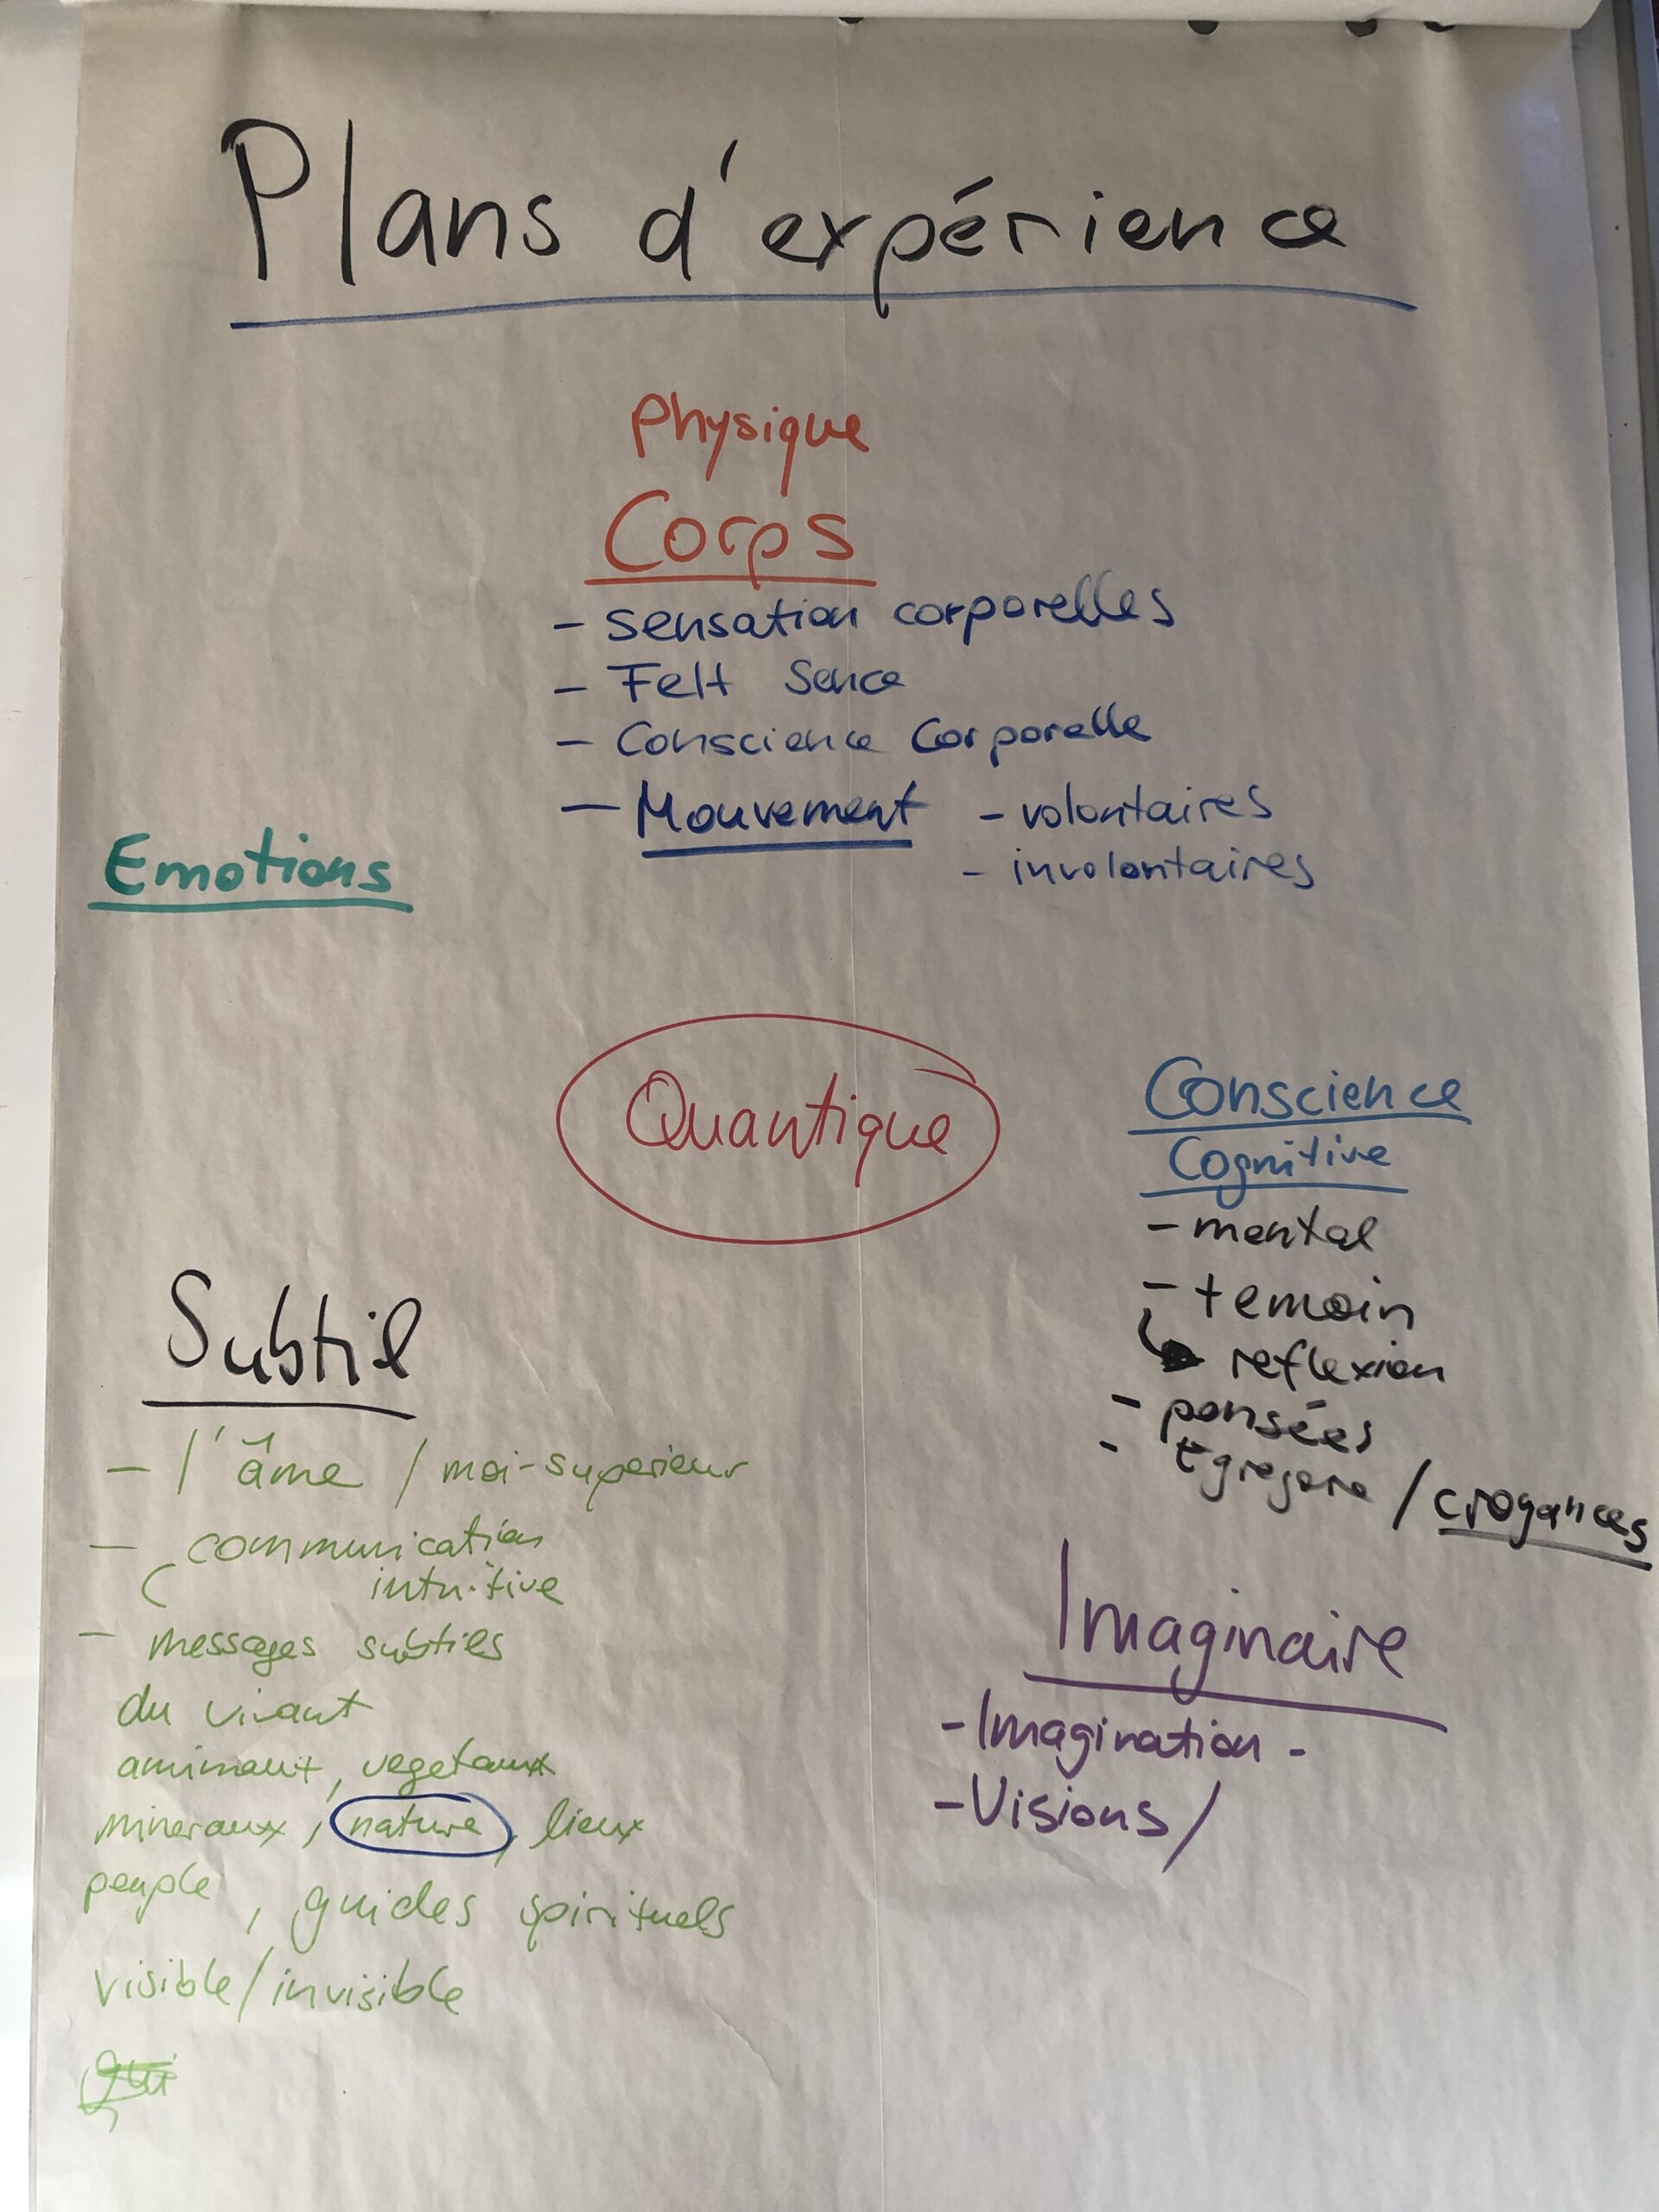 Plans d'expérience
Physique
Corps
- sensation corporelles
- Felt Sence
- Conscience Corporelle
- Mouvement - volontaires
- involontaires
Emotions
Quantique
Conscience
Cognitive
- mental
- temoin
reflexion
- pensées
- Egregore / croyances
Subtil
- l'âme / moi-superieur
- communication
intuitive
- messages subtils
du vivant
animaux, vegetaux
mineraux, nature, lieux
peuple, guides spirituels
visible/invisible
Imaginaire
- Imagination -
- Visions /